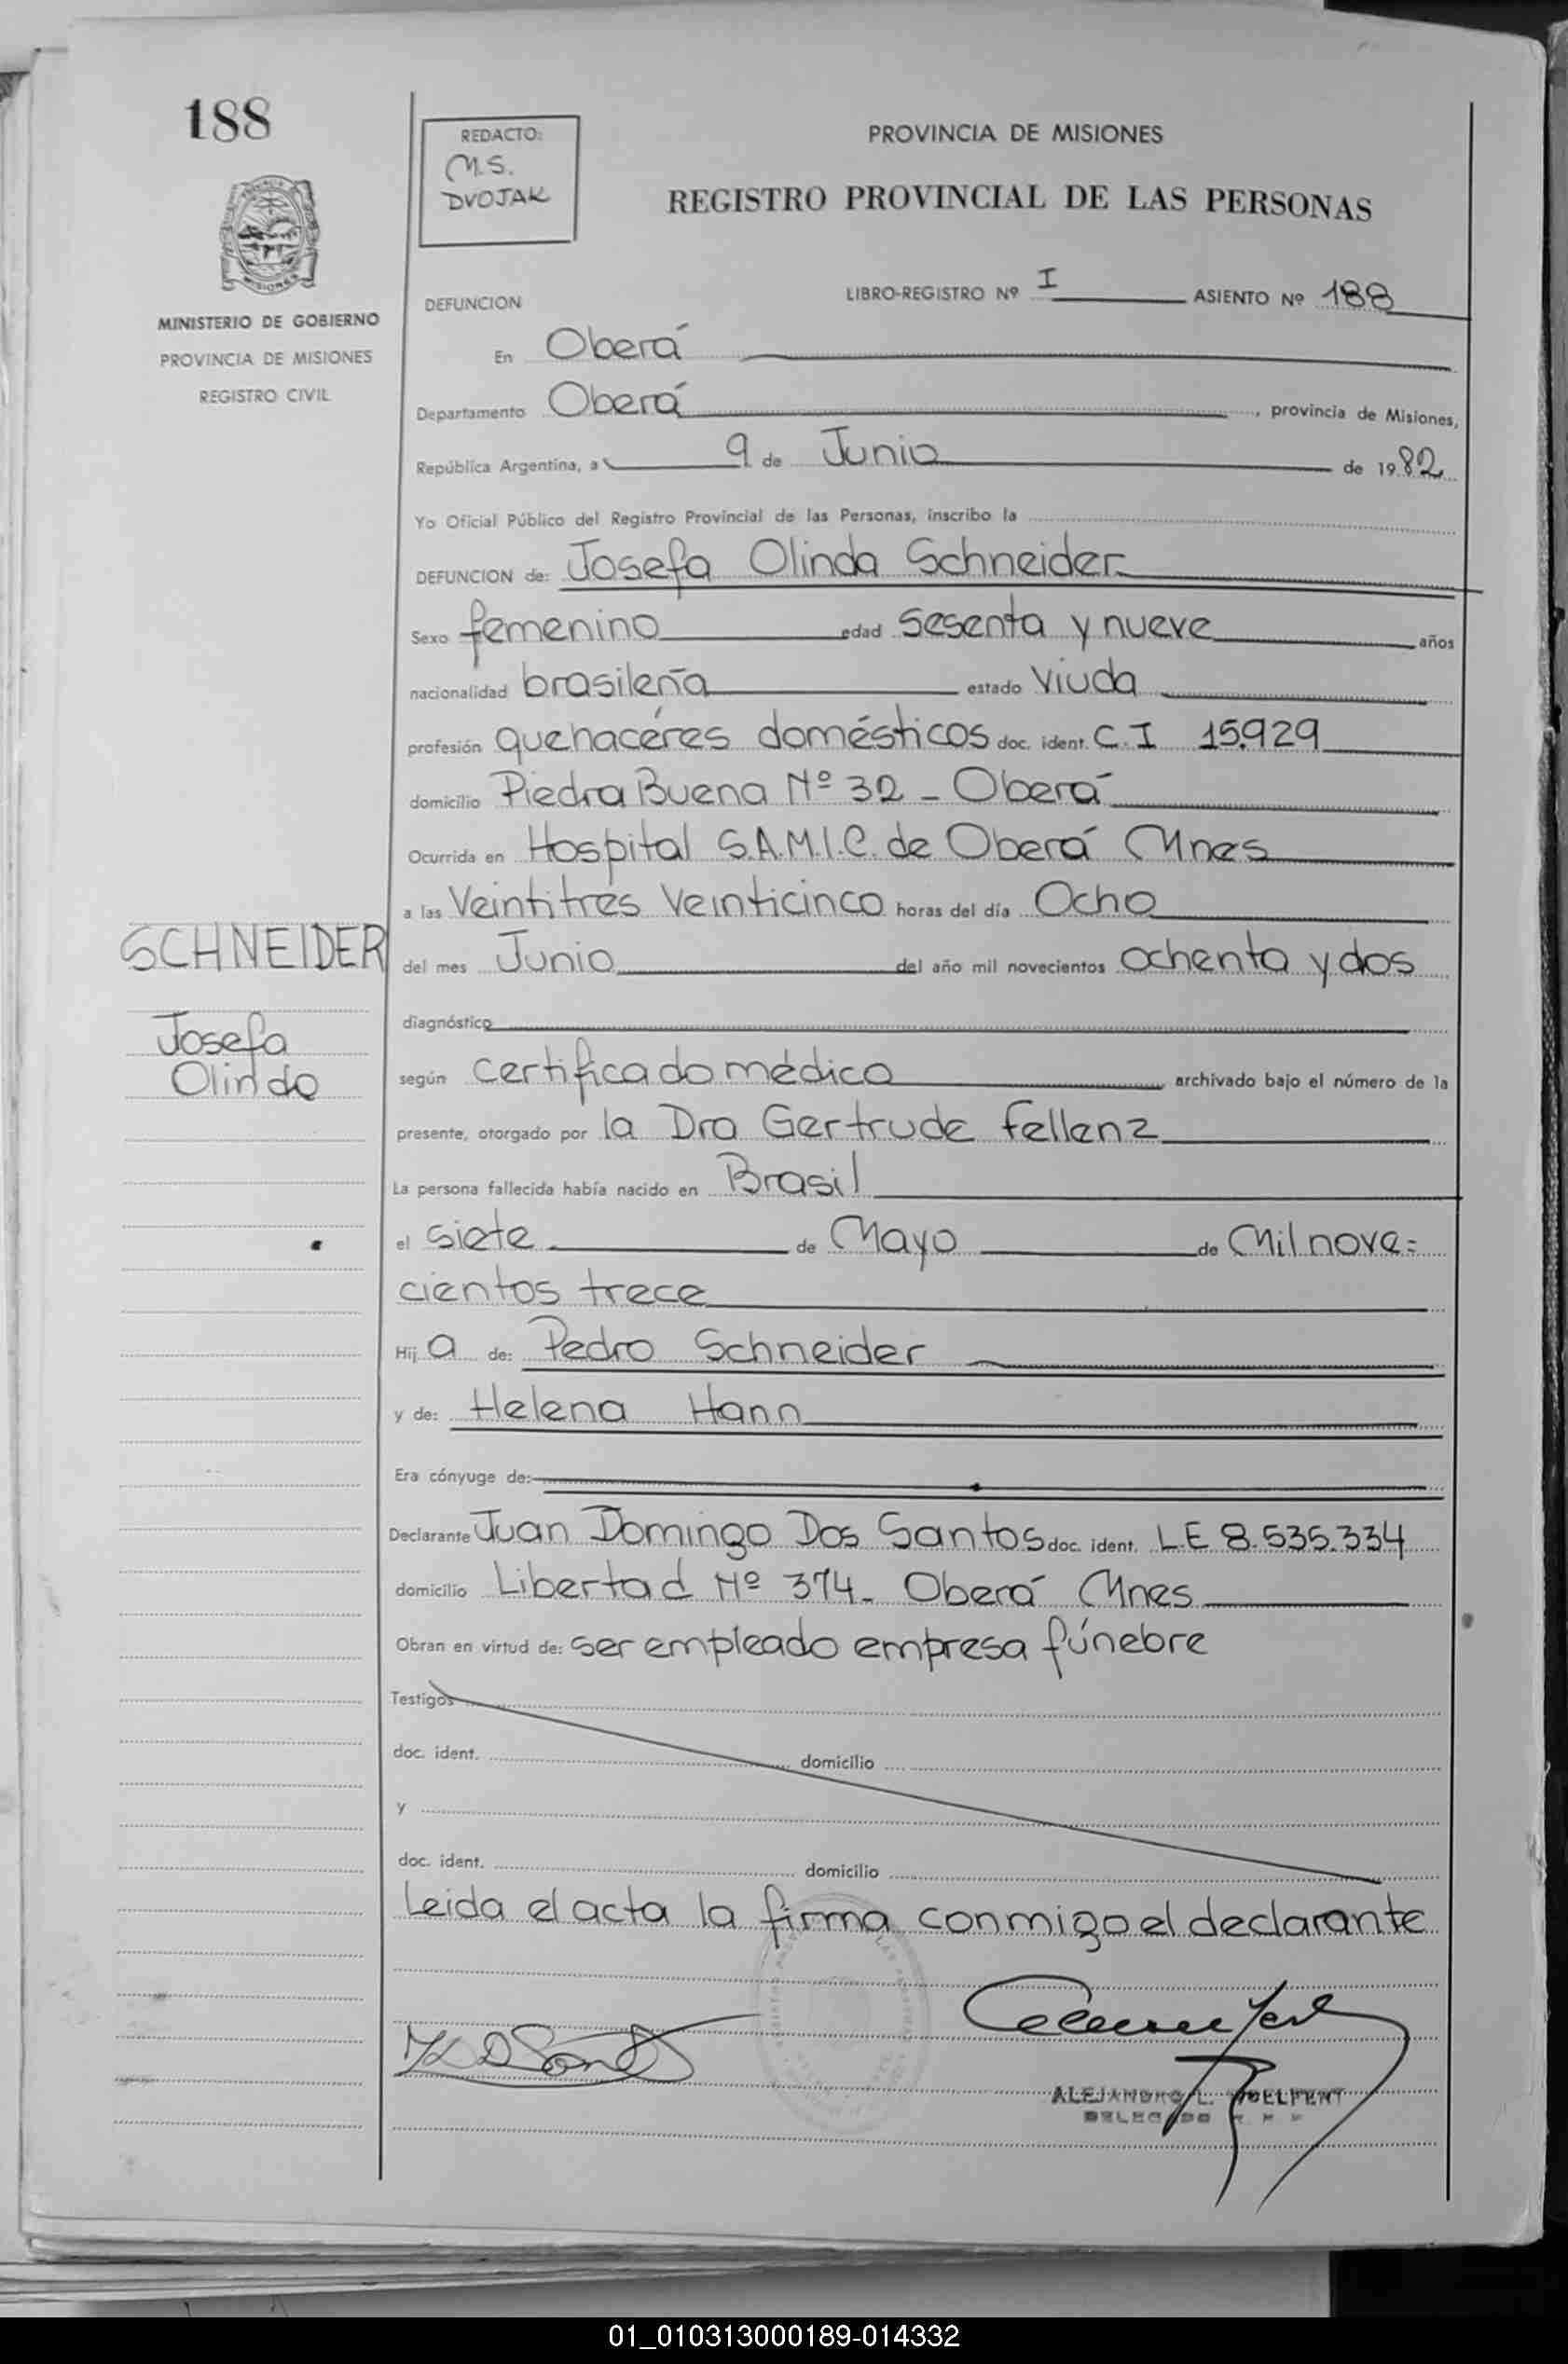 188
REDACTO:
M.S.
DVOJAK
PROVINCIA DE MISIONES
REGISTRO PROVINCIAL DE LAS PERSONAS
MISIONES
MINISTERIO DE GOBIERNO
PROVINCIA DE MISIONES
REGISTRO CIVIL
DEFUNCION
LIBRO-REGISTRO Nº I ASIENTO Nº 188
En Oberá
Departamento Oberá, provincia de Misiones,
República Argentina, a 9 de Junio de 1982
Yo Oficial Público del Registro Provincial de las Personas, inscribo la
DEFUNCION de: Josefa Olinda Schneider
Sexo femenino edad sesenta y nueve años
nacionalidad brasileña estado viuda
profesión quehacéres domésticos doc. ident. C.I 15.929
domicilio Piedra Buena Nº 32 - Oberá
Ocurrida en Hospital S.A.M.I.C. de Oberá Mnes
a las Veintitrés Veinticinco horas del día Ocho
SCHNEIDER
del mes Junio del año mil novecientos ochenta y dos
diagnóstico
Josefa
Olinda
según certificado médico archivado bajo el número de la
presente, otorgado por la Dra Gertrude Fellenz
La persona fallecida había nacido en Brasil
el siete de Mayo de Mil nove=
cientos trece
Hij a de: Pedro Schneider
y de: Helena Hann
Era cónyuge de:
Declarante Juan Domingo Dos Santos doc. ident. LE 8.535.334
domicilio Libertad Nº 374- Oberá Mnes
Obran en virtud de: ser empleado empresa fúnebre
Testigos
doc. ident. domicilio
y
doc. ident. domicilio
Leida el acta la firma conmigo el declarante
ALEJANDRO L.
01_010313000189-014332